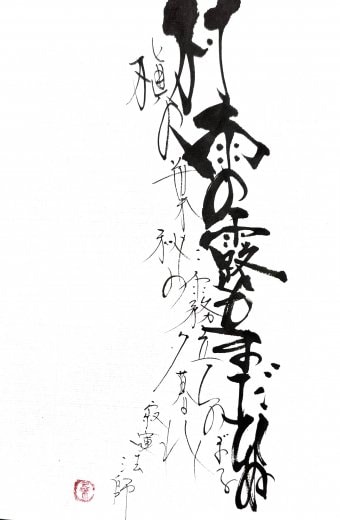 村雨の露もまだひぬ
槇の葉に霧立ちのぼる
秋の夕暮れ
寂蓮法師